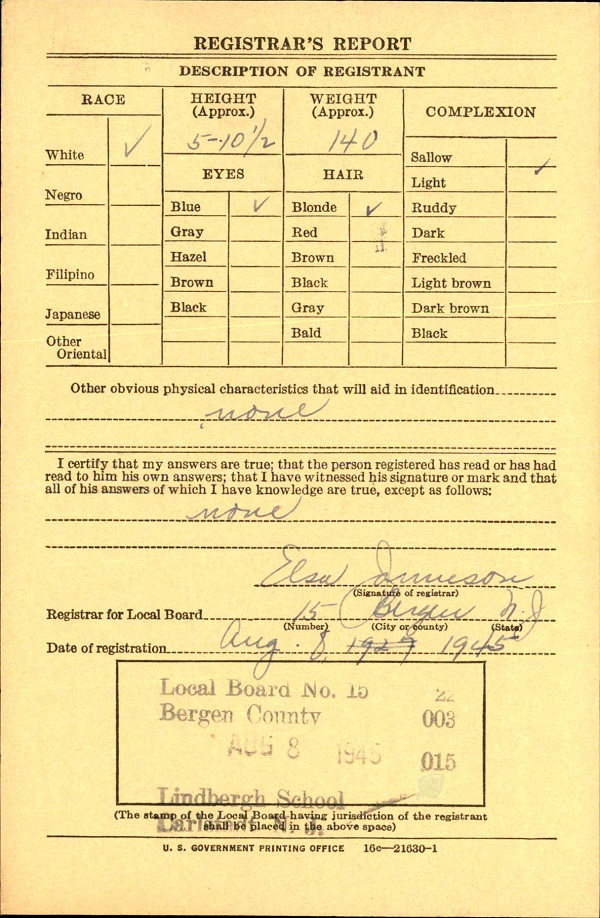 REGISTRAR'S REPORT
DESCRIPTION OF REGISTRANT
RACE
HEIGHT
(Approx.)
WEIGHT
(Approx.)
COMPLEXION
5-10 1/2
140
White ✓
Negro
Indian
Filipino
Japanese
Other
Oriental
EYES
Blue ✓
Gray
Hazel
Brown
Black
HAIR
Blonde ✓
Red
Brown
Black
Gray
Bald
Sallow
Light ✓
Ruddy
Dark
Freckled
Light brown
Dark brown
Black
Other obvious physical characteristics that will aid in identification
none
I certify that my answers are true; that the person registered has read or has had
read to him his own answers; that I have witnessed his signature or mark and that
all of his answers of which I have knowledge are true, except as follows:
none
Elsa
(Signature of registrar)
Registrar for Local Board 15 Bergen N.J
(Number) (City or county) (State)
Date of registration Aug. 8, 1927 1945
Local Board No. 15 22
Bergen County 003
AUG 8 1945 015
Lindbergh School
Carlstadt, N. J.
(The stamp of the Local Board having jurisdiction of the registrant
shall be placed in the above space)
U. S. GOVERNMENT PRINTING OFFICE 16c—21630-1